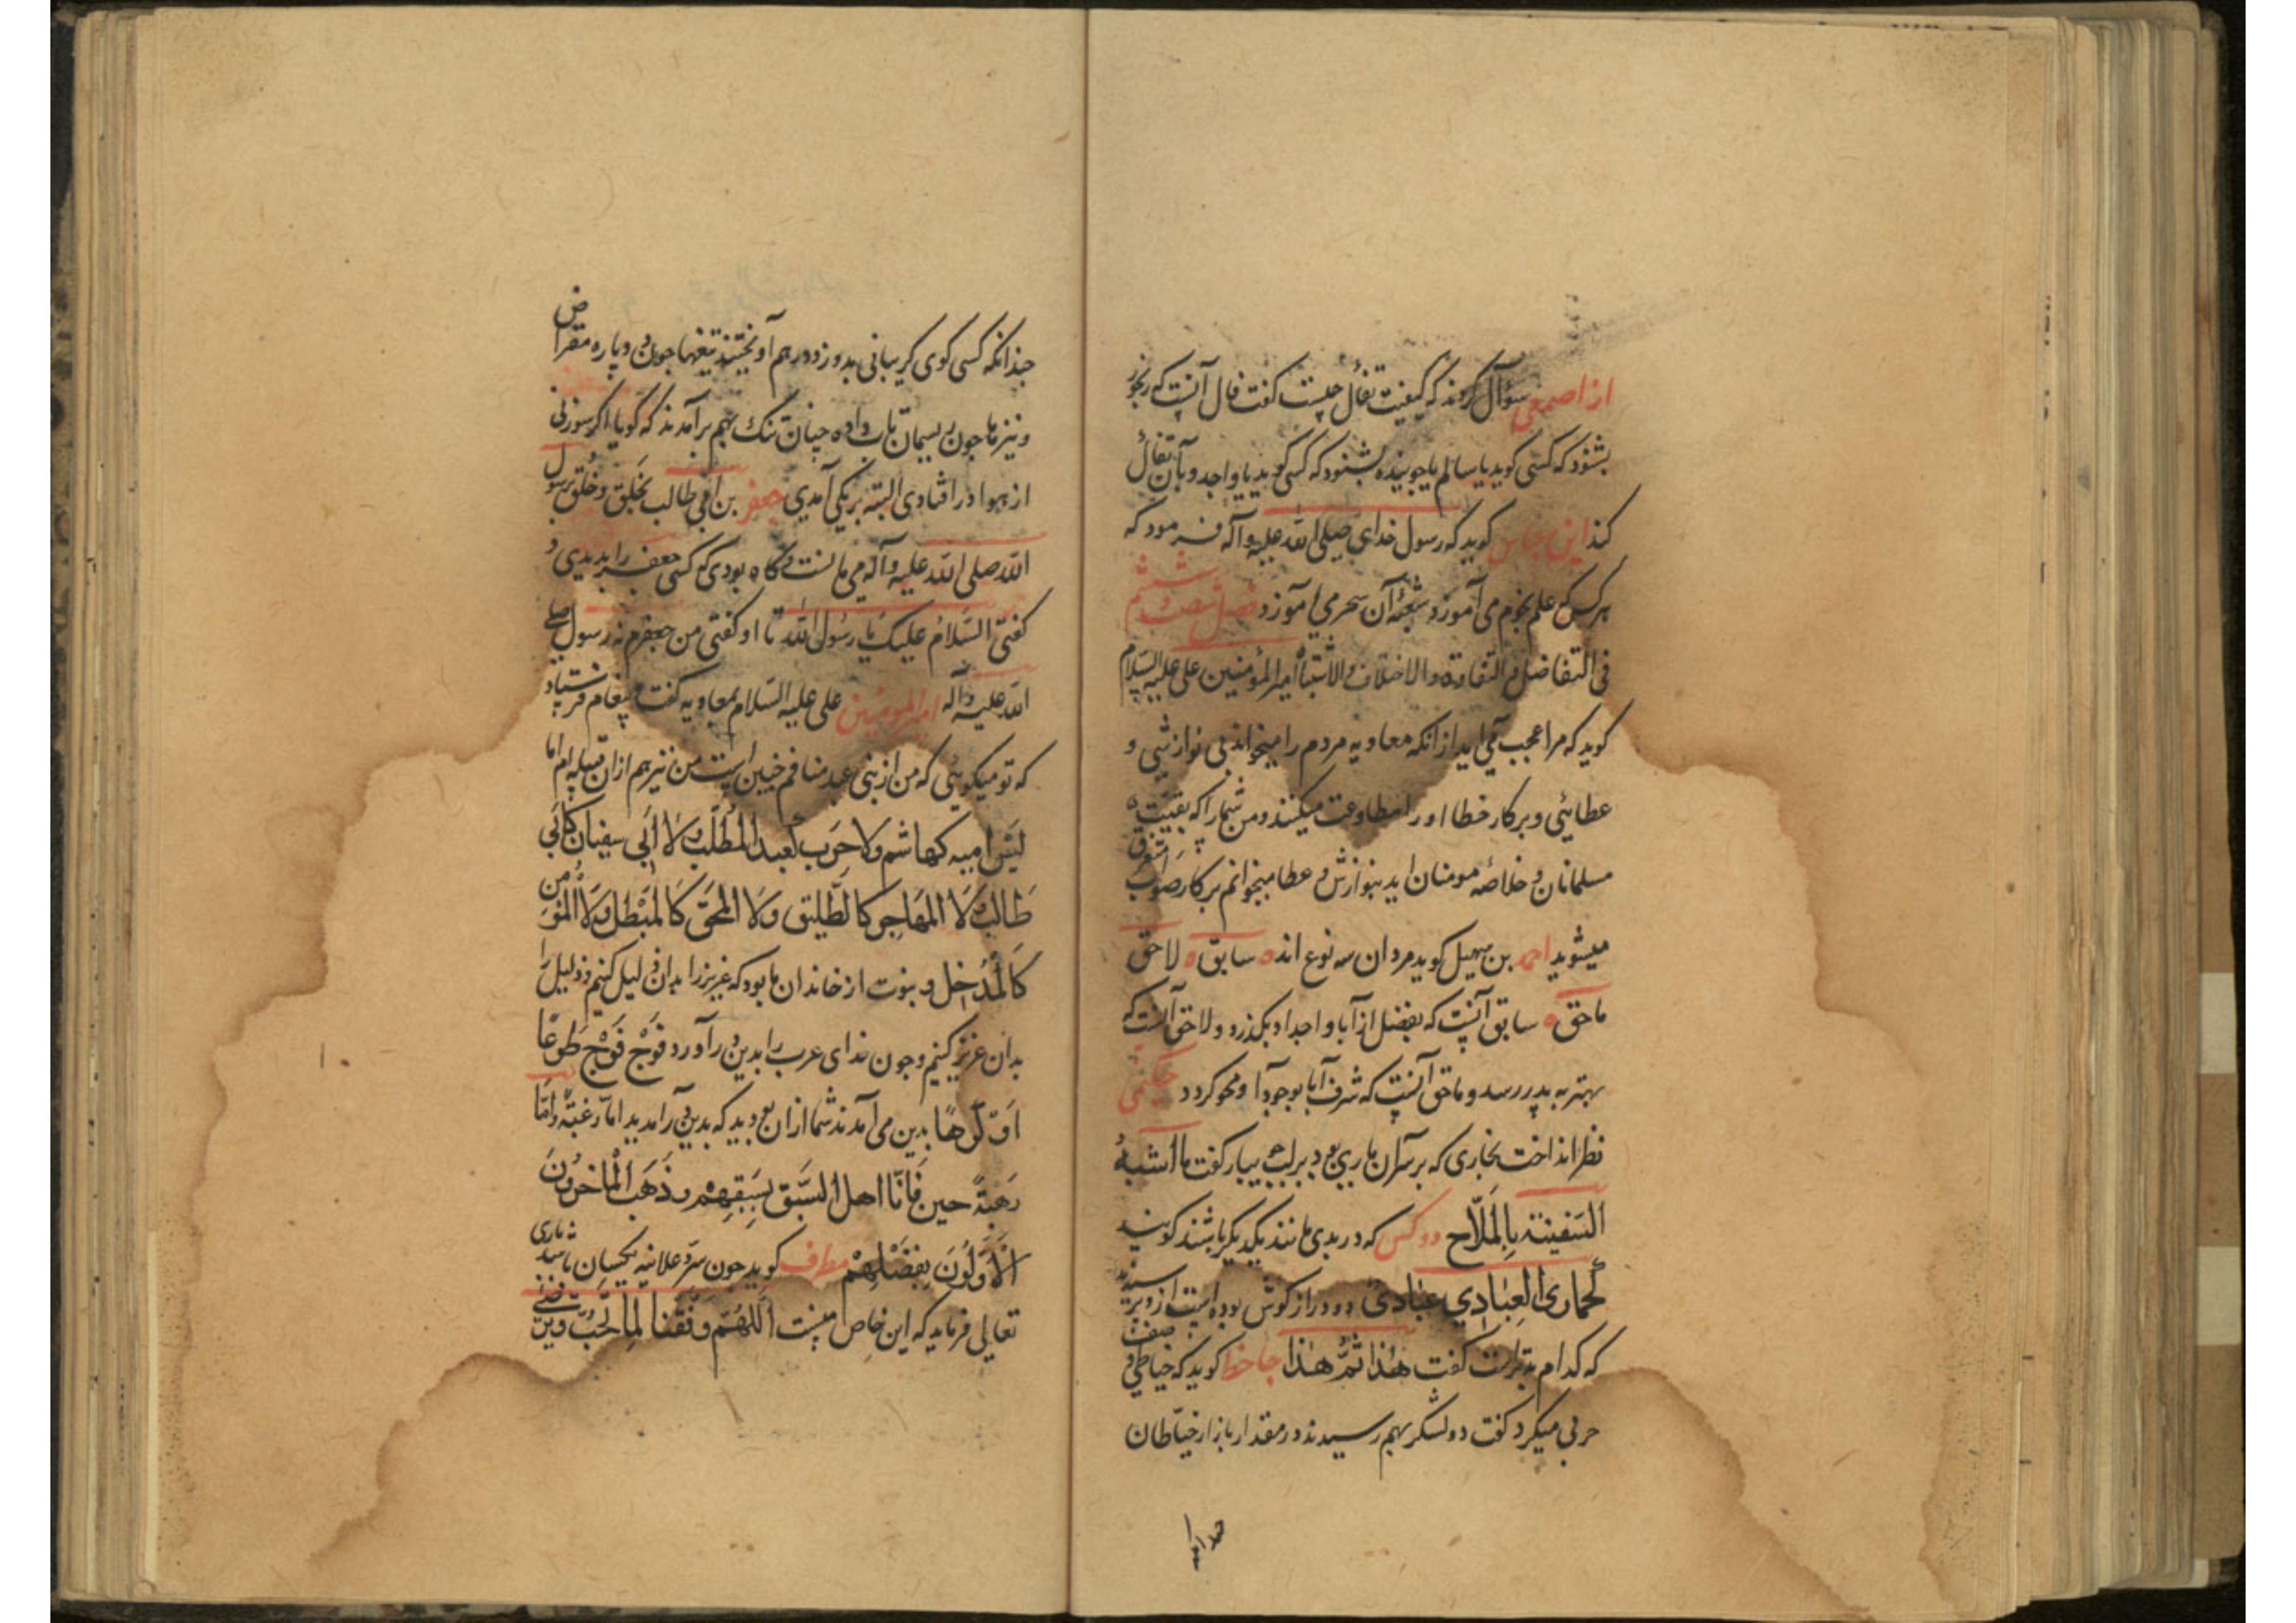 از اصمعی سؤال کردند که کیفیت تفأل چیست گفت فال آنست که رنجور
بشنود که کسی کوید یا سالم یا جوینده بشنود که کسی کوید یا واجد و بآن تفأل
کند ابن عباس کوید که رسول خدای صلی الله علیه و آله فرمود که
هر کس که علم نجوم می آموزد شعبهٔ آن سحر می آموزد فصل شصت و ششم
فی التفاضل و التفاوت و الاختلاف و الاشتباه امیر المؤمنین علی علیه السلام
کوید که مرا عجب می آید از انکه معاویه مردم را میخواند بی نوازشی و
عطایئی و بر کار خطا او را مطاوعت میکنند و من شما را که بقیت
مسلمانان و خلاصهٔ مومنان اید بنوازش و عطا میخوانم بر کار صواب متفرق
میشوید احمد بن سهیل کوید مردان سه نوع اند سابق لاحق
ماحق سابق آنست که بفضل از آبا و اجداد بکذرد و لاحق آنست که
بهتر به پدر رسد و ماحق آنست که شرف آبا بوجود او محو کردد حکیمی
نظر انداخت بخاری که بر سر آن ماری بود بر لب کفت ما اشبه
السفینة بالملاح دو کس که در بدی مانند یکدیکر باشند کویند
کحماری العبادی عبادی دو دراز کوش بوده است از و پرسیدند
که کدام بدتر است کفت هذا ثم هذا جاحظ کوید که خیاطی صفت
حربی میکرد کفت دو لشکر بهم رسیدند در مقدار بازار خیاطان
چندانکه کسی کوی کریبانی بدوزد در هم آویختند تیغها چون دو پاره مقراض
و نیزه ها چون ریسمان تاب داده چنان تنک بهم برآمدند که کویا اکر سوزنی
از هوا در افتادی البته بر یکی آمدی جعفر بن ابی طالب بخلق و خلق برسول
الله صلی الله علیه و آله می مانست کاه بودی که کسی جعفر را بدیدی و
کفتی السلام علیک یا رسول الله تا او کفتی من جعفرم نه رسول صلی
الله علیه و آله امیر المومنین علی علیه السلام بمعاویه کفت و پیغام فرستاد
که تو میکویئی که من از بنی عبد منافم چنین است من نیز هم از ان قبیله ام اما
لیس امیه کهاشم ولا حرب کعبد المطلب ولا ابی سفیان کابی
طالب ولا المهاجر کالطلیق ولا المحق کالمبطل ولا المؤمن
کالمدخل و نبوت از خاندان ما بود که عزیز را بدان ذلیل کنیم و ذلیل را
بدان عزیز کنیم و چون خدای عرب را بدین در آورد فوج فوج طوعا
او کرها بدین می آمدند شما از ان بودید که بدین در آمدید اما رغبة و اما
رهبة حین فانا اهل السبق بسبقهم و ذهب الماخرون
الاولون بفضلهم مطرف کوید چون سر و علانیه یکسان باشد باری
تعالی فرماید که این خاص منست اللهم وفقنا لما تحب و ترضی